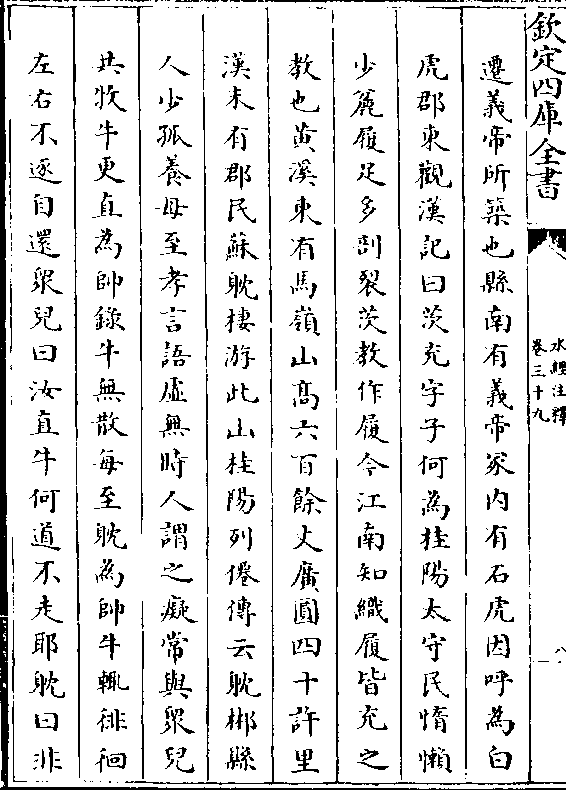 欽定四庫全書
水經注釋
卷三十九
遷義帝所築也縣南有義帝冢内有石虎因呼為白
虎郡東觀漢記曰茨充字子何為桂陽太守民惰懶
少麄履足多剖裂茨教作履今江南知織履皆充之
教也黄溪東有馬嶺山髙六百餘丈廣圓四十許里
漢末有郡民蘇耽棲游此山桂陽列僊傳云耽郴縣
人少孤養母至孝言語虚無時人謂之癡常與衆兒
共牧牛更直為帥錄牛無散每至耽為帥牛輒徘徊
左右不逐自還衆兒曰汝直牛何道不走耶耽曰非